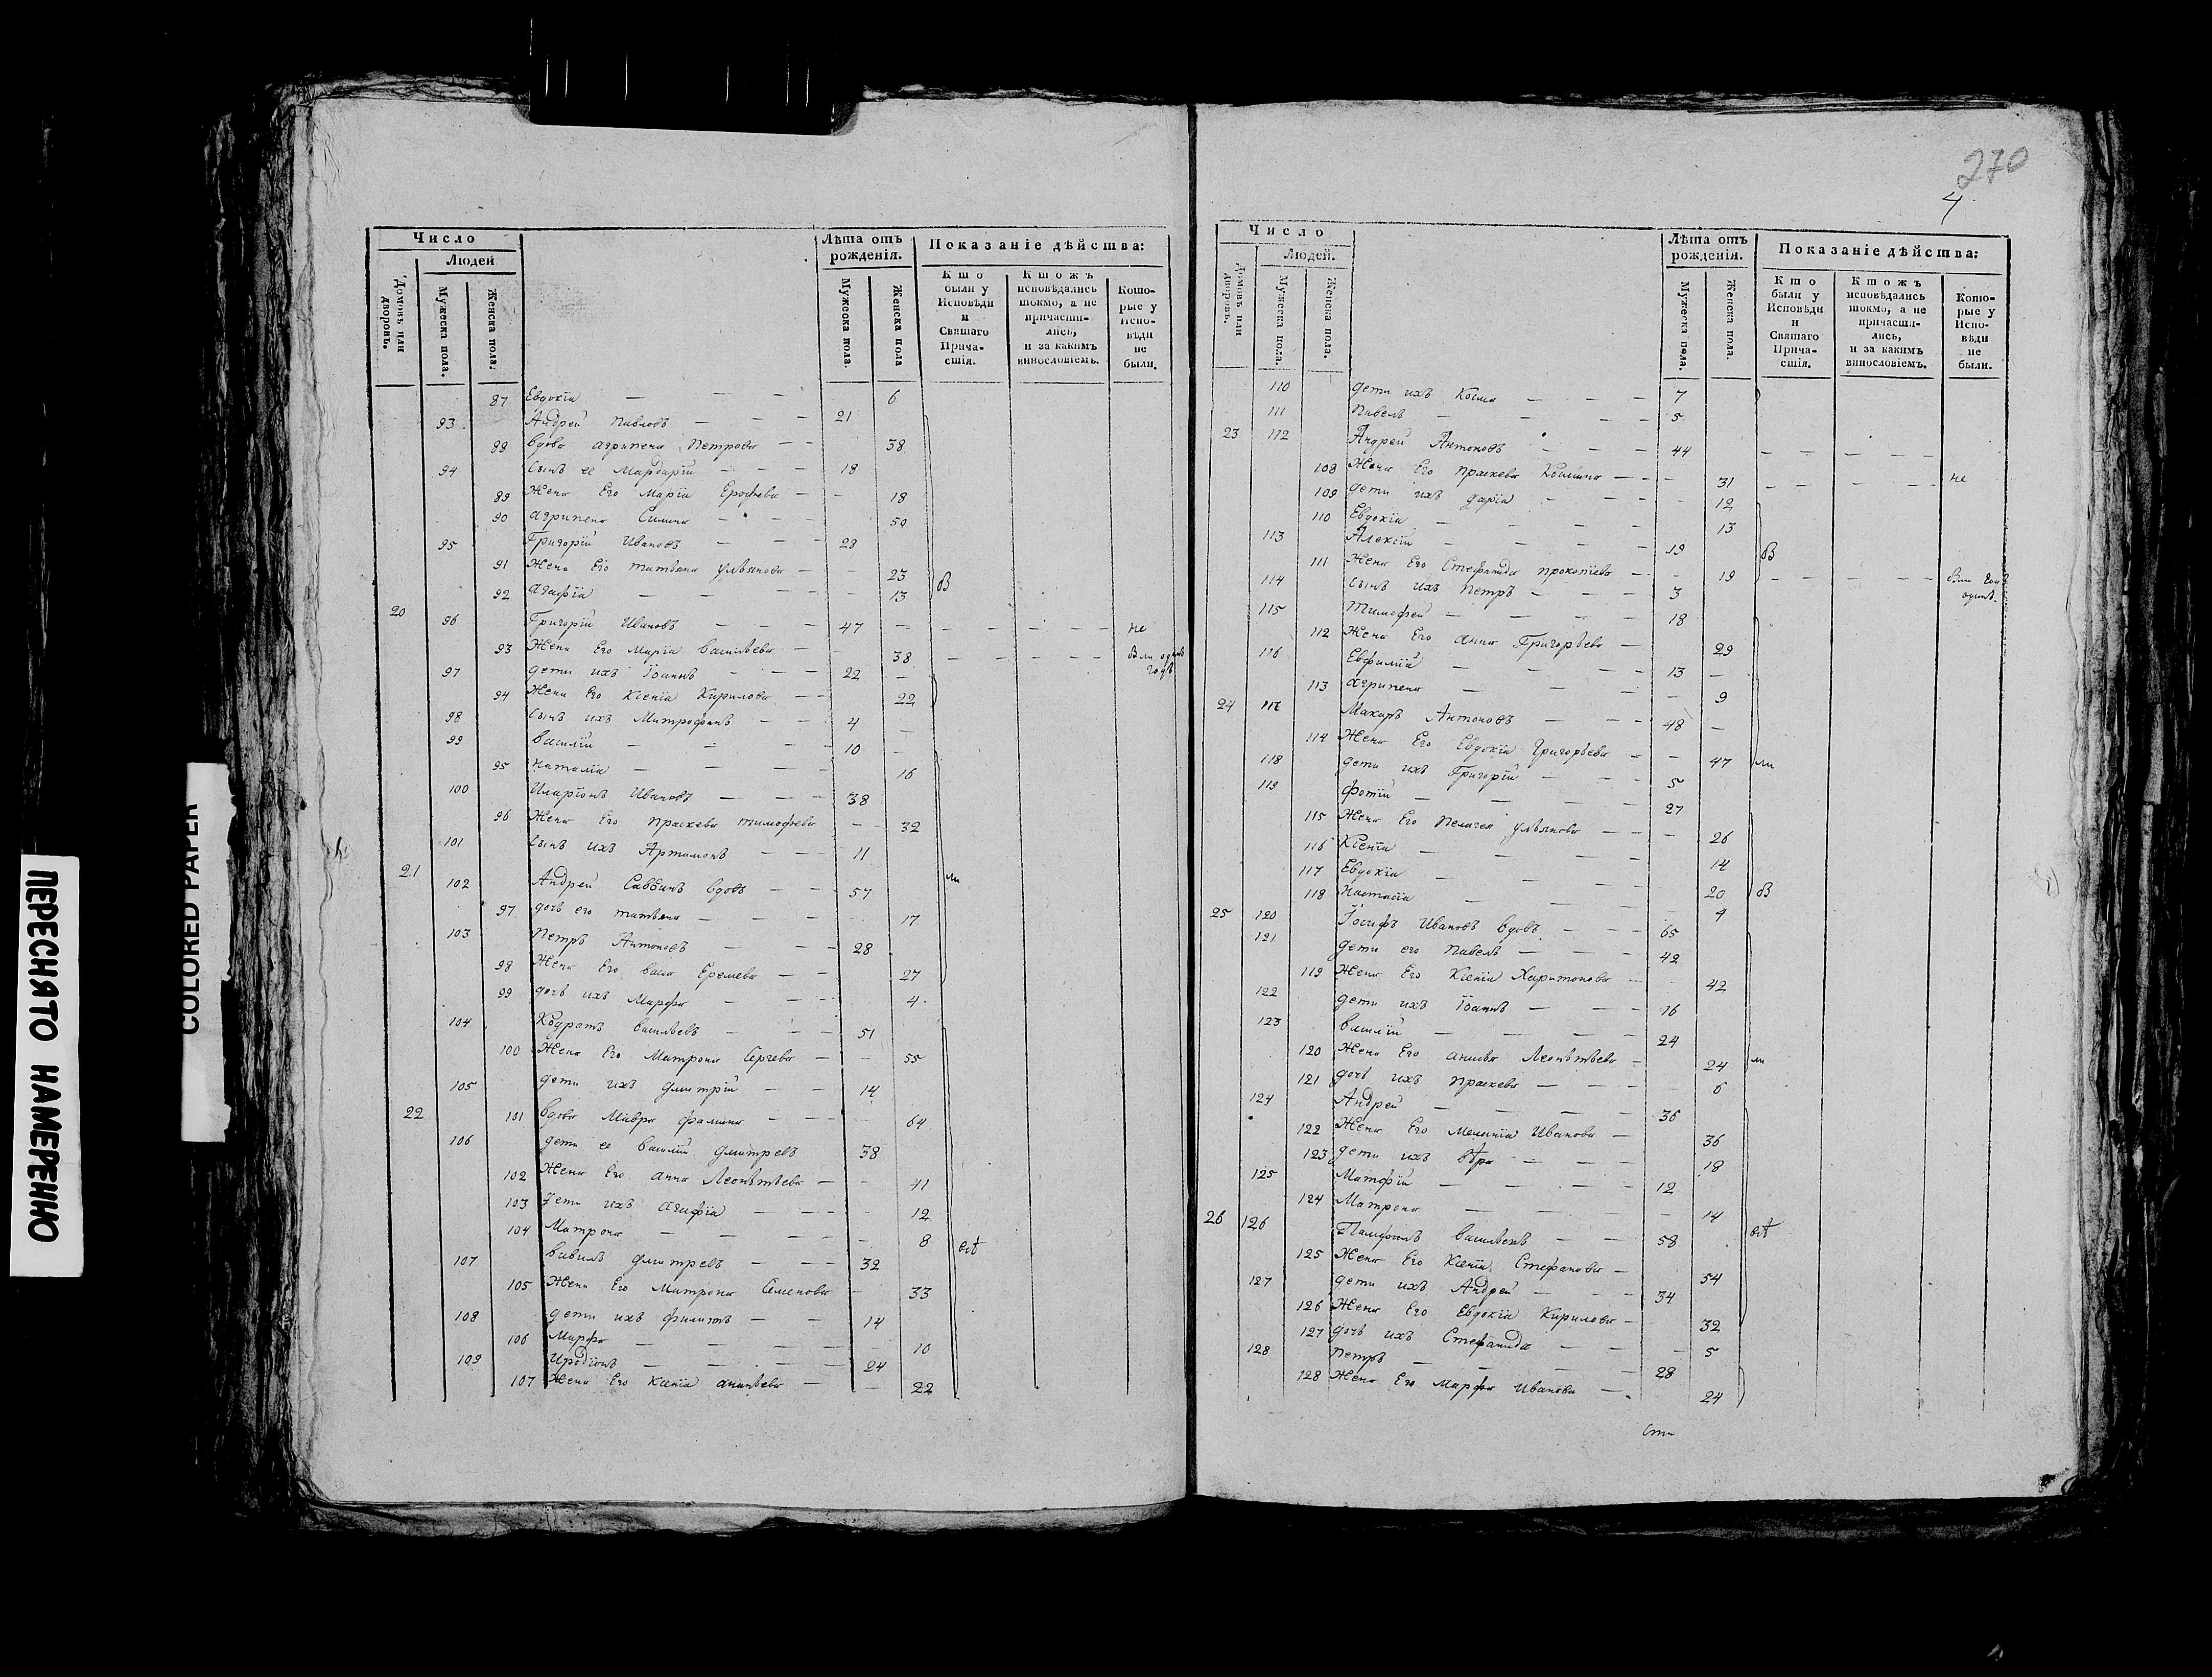 270
4
Число
Лѣта отъ рожденія.
Показаніе дѣйства:
Людей
Домовъ или дворовъ.
Мужеска пола.
Женска пола.
Мужеска пола.
Женска пола
Кто были у Исповѣди и Святаго Прича-стія.
Ктожъ исповѣдались токмо, а не причасти-лись, и за какимъ винословіемъ.
Кото-рые у Испо-вѣди не были.
87 Евдокіа — — — 6
93 Андрей Павловъ — — 21
88 вдова агрипена Петрова — — 38
94 сынъ ее Мардарій — — — 18
89 Жена Его Маріа Ерофѣева — — 18
90 агрипена Силина — — — 50
95 Григорій Ивановъ — — — 28
91 Жена Его татіана улѣянова — — 23
92 агафіа — — — — 13 В
20 96 Григорій Ивановъ — — — 47 — — — — — не
93 Жена Его Маріа васильева — — 38 — — — — — В ли одинъ годъ
97 дети ихъ Іоаннъ — — — 22 —
94 Жена Его Ксеніа Кирилова — — 22
98 сынъ ихъ Митрофанъ — — 4 —
99 василій — — — 10 —
95 наталіа — — — — 16
100 Иларіонъ Ивановъ — — — 38
96 Жена Его праскева тимофѣева — — 32
101 сынъ ихъ Артамонъ — — — 11
21 102 Андрей Саввинъ вдовъ — — 57 ли
97 дочь его татіана — — — 17
103 Петръ Антоновъ — — — 28
98 Жена Его васа Еремѣева — — 27
99 дочь ихъ Марфа — — — 4
104 Кодратъ васильевъ — — — 51
100 Жена Его Матрона Сергѣева — — 55
105 дети ихъ дмитрій — — 14
22 101 вдова Мавра фамина — — — 64
106 дети ее василій дмитревъ 38
102 Жена Его анна Леонтьева — — 41
103 дети ихъ агафіа — — — 12
104 Матрона — — — — — 8 всѣ
107 вавилъ дмитревъ — — — 32
105 Жена Его Матрона Семенова — 33
108 дети ихъ филипъ — — 14
106 Марфа — — — — — 10
109 Иродіонъ — — — — 24
107 Жена Его Ксеніа ананьева — — 22
Число
Лѣта отъ рожденія.
Показаніе дѣйства:
Людей.
Домовъ или дворовъ.
Мужеска пола.
Женска пола.
Мужеска пола.
Женска пола.
Кто были у Исповѣди и Святаго Прича-стія.
Ктожъ исповѣдались токмо, а не причасти-лись, и за какимъ винословіемъ.
Кото-рые у Испо-вѣди не были.
110 дети ихъ Косма — — — 7
111 павелъ — — — — 5
23 112 Андрей Антоновъ — — — 44 — — — — —
108 Жена Его праскева Космина — — 31 — — — — — не
109 дети ихъ дарiа — — — 12
110 Евдокіа — — — — 13
113 Алексій — — — — 19 В
111 Жена Его Стефанида прокопіева — — 19 — — — — — В ли годъ одинъ.
114 сынъ ихъ Петръ — — — 3
115 Тимофей — — — — 18
112 Жена Его анна Григорьева — 29
116 Евфимій — — — — 13 —
113 агрипена — — — — — 9
24 117 Макаръ Антоновъ — — — 48 —
114 Жена Его Евдокіа Григорьева — — 47 ли
118 дети ихъ Григорій — — 5
119 фотій — — — — 27
115 Жена Его пелагея улѣянова — — — 26
116 Ксеніа — — — — 14
117 Евдокіа — — — — 20 В
118 Настасіа — — — — 9
25 120 Іосифъ Ивановъ вдовъ — — 65
121 дети его павелъ — — — 42
119 Жена Его Ксеніа Харитонова — — 42
122 дети ихъ Іоаннъ — — — 16
123 василій — — — — 24
120 Жена Его анисья Леонтьева — 24 ли
121 дочь ихъ праскева — — — 6
124 Андрей — — — — 36
122 Жена Его меланіа Иванова — 36
123 дети ихъ вѣра — — — 18
125 Матфій — — — — 12
124 Матрона — — — — 14
26 126 Памфилъ васильевъ — — 58 всѣ
125 Жена Его Ксеніа Стефанова — 54
127 дети ихъ Андрей — — — 34
126 Жена Его Евдокіа Кирилова — 32
127 дочь ихъ Стефанида — — — 5
128 Петръ — — — — 28
128 Жена Его Марфа Иванова — 24
COLORED PAPER
ПЕРЕСНЯТО НАМЕРЕННО